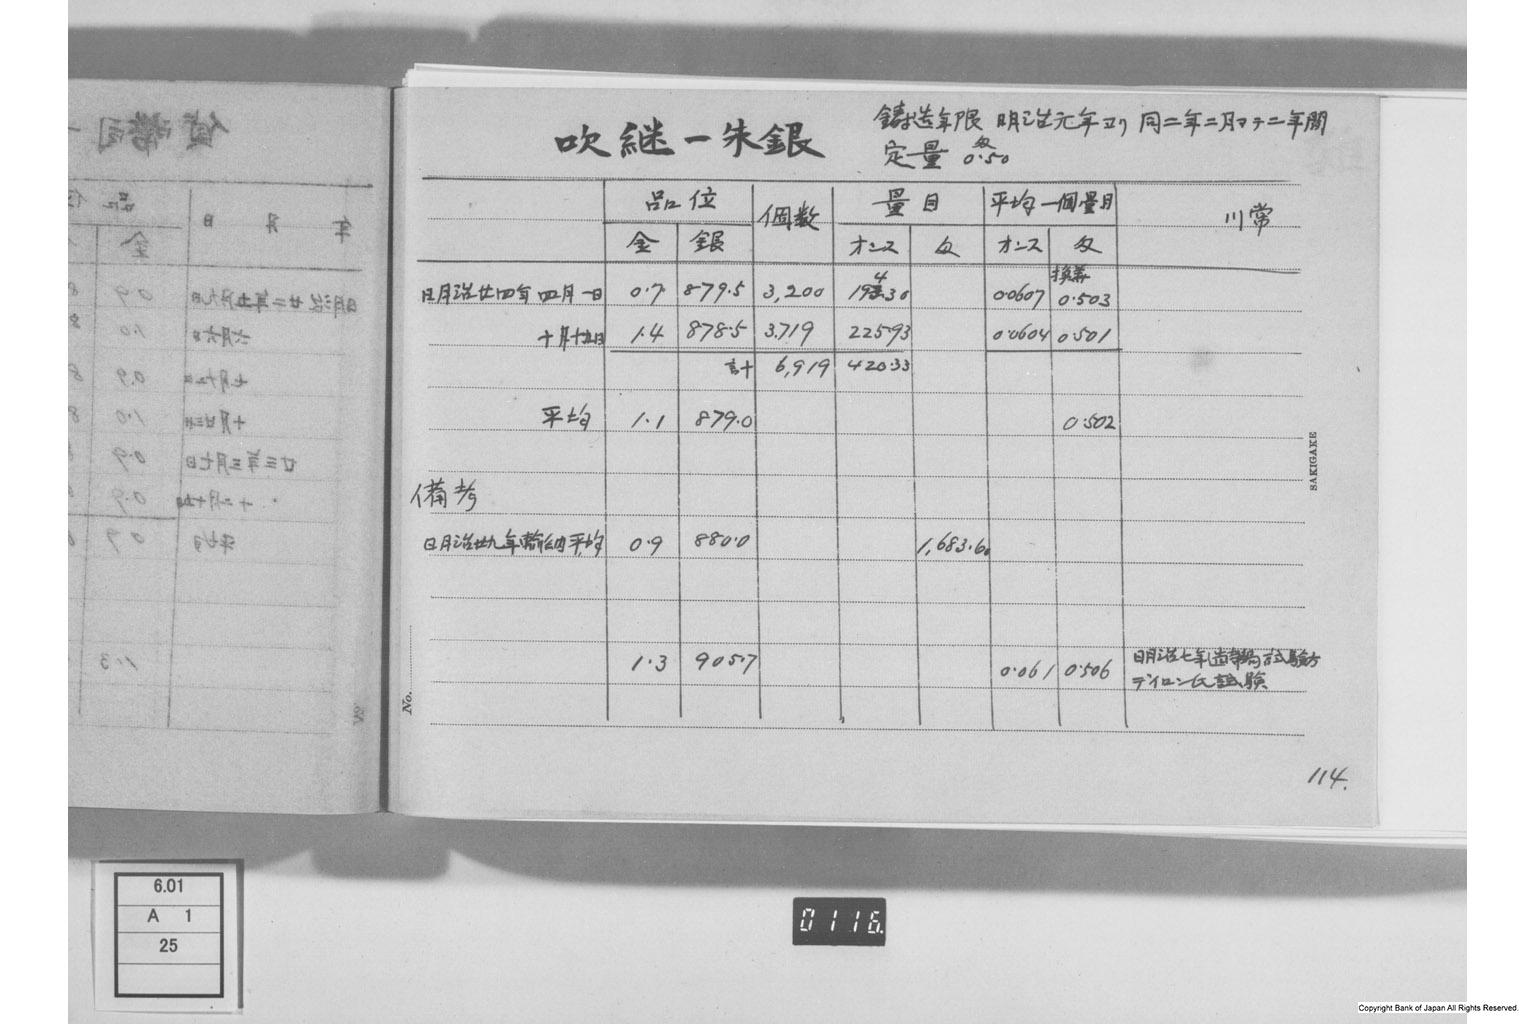 吹継一朱銀
鋳造年限 明治元年ヨリ同二年二月マテ二年間
定量 匁0.50
品位 個数 量目 平均一個量目
金 銀 オンス 匁 オンス 匁
明治廿四年四月一日 0.7 879.5 3,200 194.30 0.0607 換算0.503
十月十五日 1.4 878.5 3,719 225.93 0.0604 0.501
計 6,919 420.33
平均 1.1 879.0 0.502
備考
明治廿九年輸納平均 0.9 880.0 1,683.60
1.3 905.7 0.061 0.506 明治七年造幣局試験方
デイロン氏試験
114.
No.
SAKIGAKE
年 月 日
金
明治廿二年五月九日 0.9
六月六日 1.0
0.9
1.0
廿三年三月七日 0.9
0.9
平均 0.9
1.3
6.01
A 1
25
0116.
Copyright Bank of Japan All Rights Reserved.